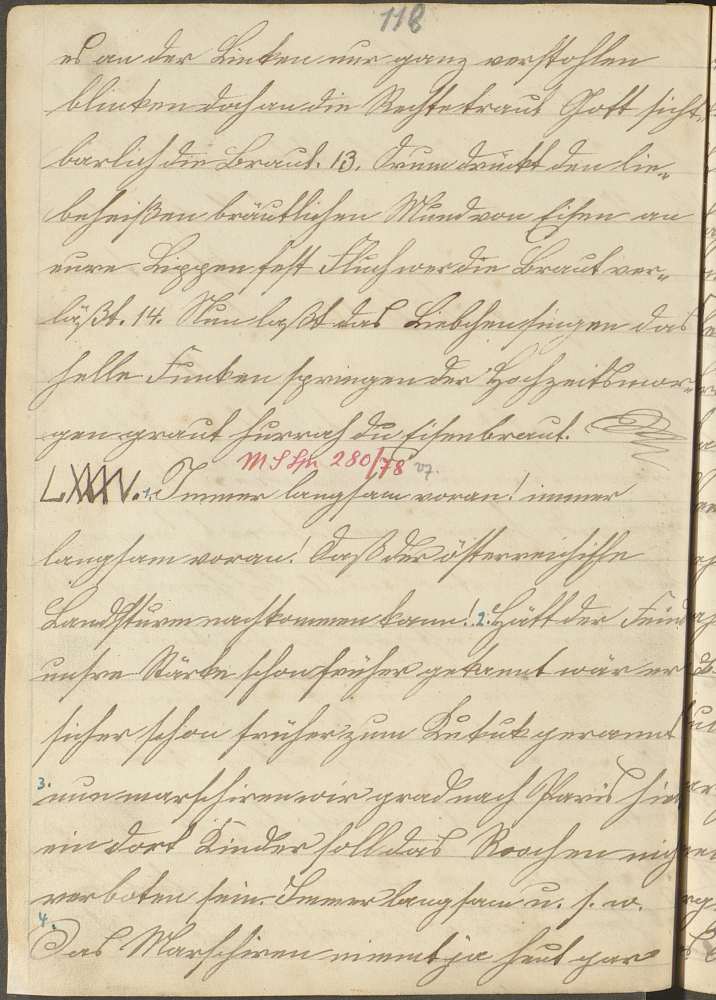 118
es an der Linken nur ganz verstohlen
blinken doch an die Rechte traut Gott sicht-
barlich die Braut. 13. Drum drückt den lie-
beheißen bräutlichen Mund von Eisen an
eure Lippen fest Fluch wer die Braut ver-
läßt. 14. Nun laßt das Liebchen singen das
helle Funken springen der Hochzeitsmor-
gen graut hurrah du Eisenbraut.
M S Spr 280/78
LXXXV. 1. Immer langsam voran! immer
langsam voran! Daß der österreichische
Landsturm nachkommen kann! 2. Hätt der Feind
unsre Stärke schon früher gekannt wär er
sicher schon früher zum Kukuk gerannt
3. nun marschiren wir grad nach Paris hin
ein dort Kinder soll das Roochen nich
verboten sein. Immer langsam u. s. w.
4. Das Marschiren nimmt ja heut gar